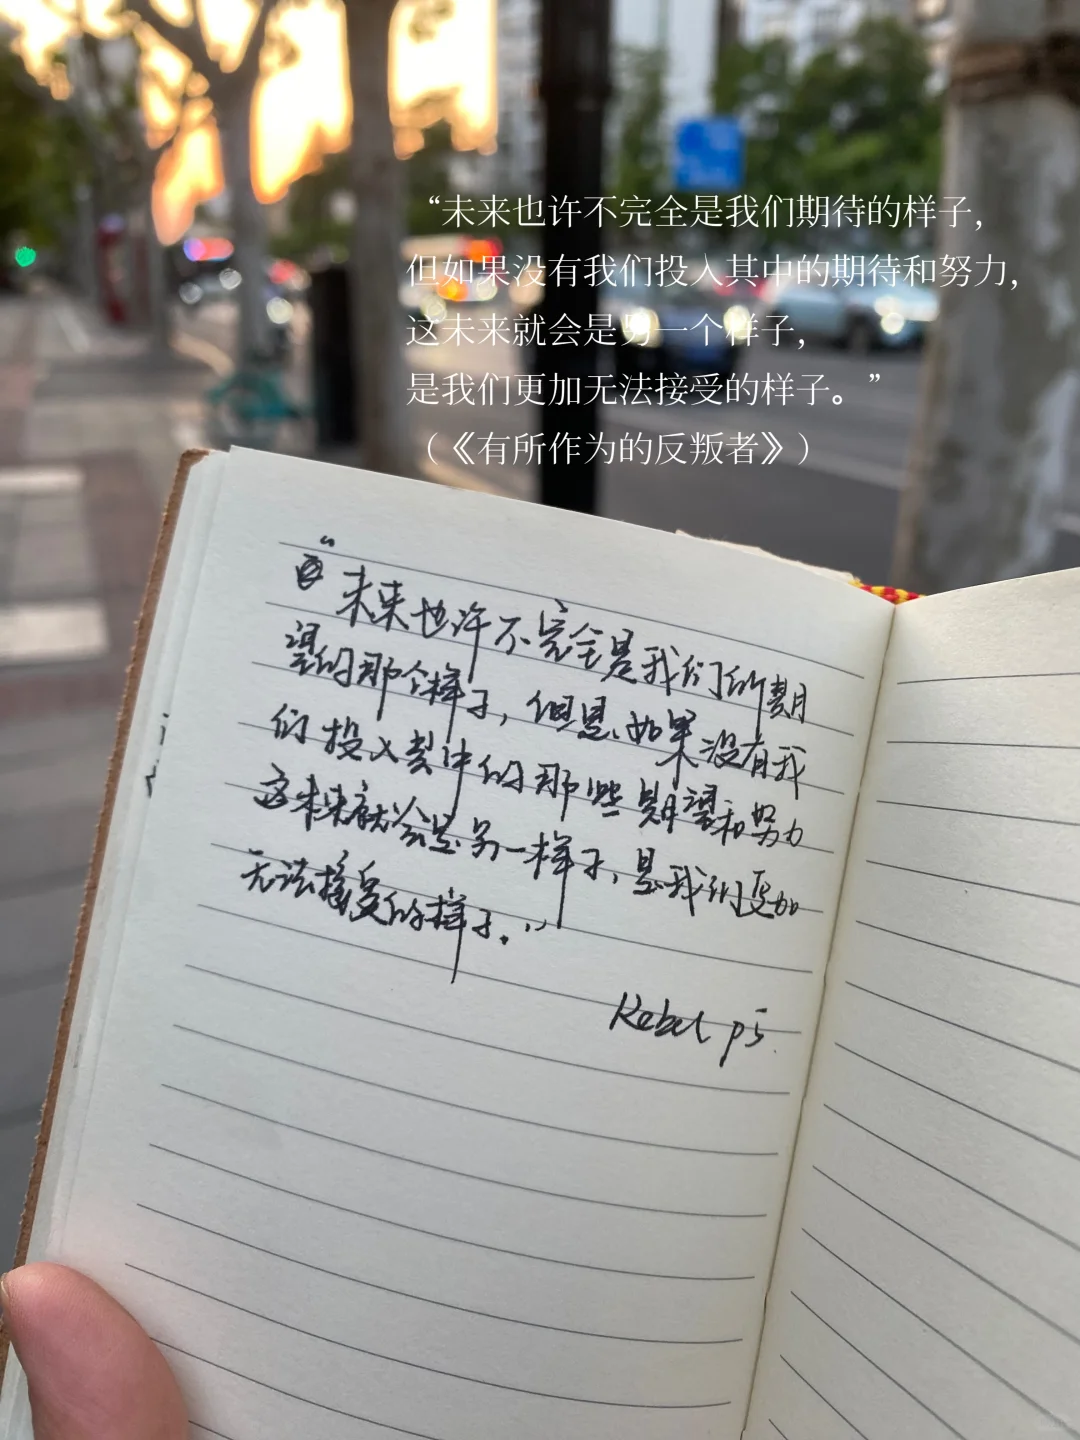 “未来也许不完全是我们期待的样子，
但如果没有我们投入其中的期待和努力，
这未来就会是另一个样子，
是我们更加无法接受的样子。”
（《有所作为的反叛者》）
“未来也许不完全是我们的期
望的那个样子，但是，如果没有我
们投入其中的那些期望和努力
这未来就会是另一样子，是我们更加
无法接受的样子．”
Rebel p5.